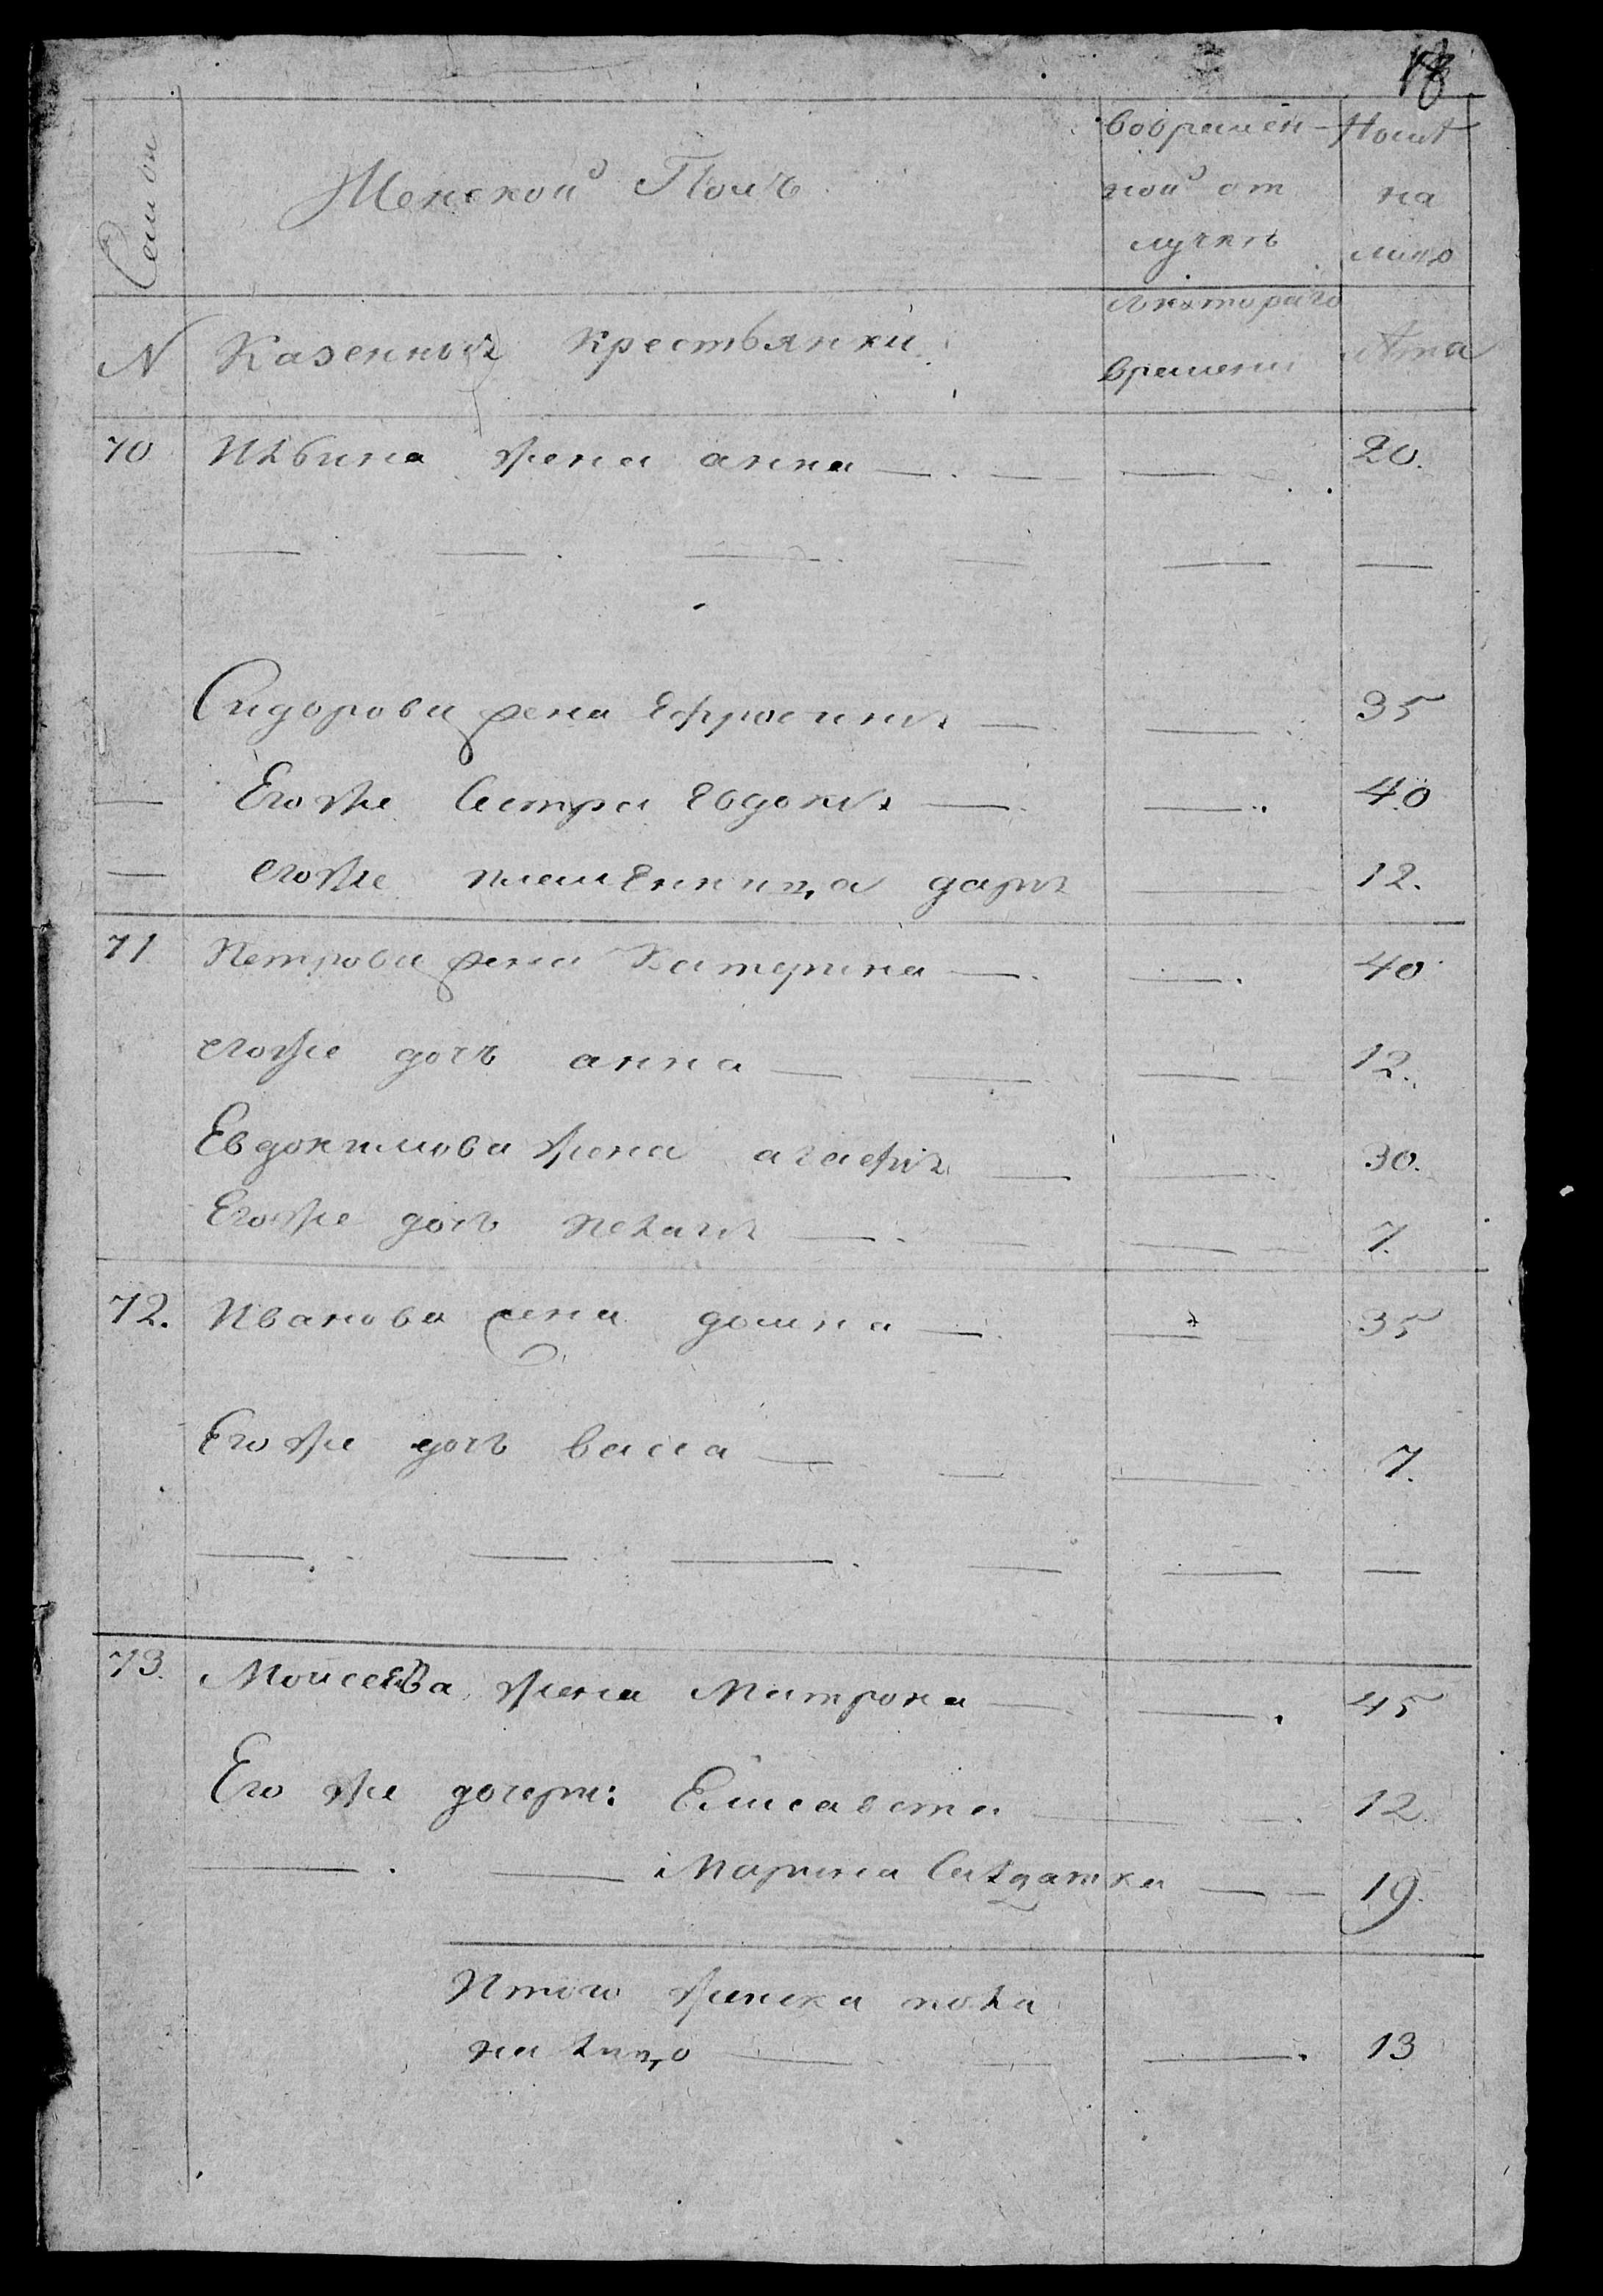 18
Семьи
Женской Полъ
во времен-
ной от
лучкѣ
Ныне
на
лицо
N
Казенныя крестьянки
с котораго
времени
лѣта
70 Ильина жена анна 20.
Сидорова жена Ефросиния 35
Его же Сестра Евдокия 40
его же племенница дарья 12.
71 Петрова жена Катерина 40
его же дочь анна 12.
Евдокимова жена агафия 30.
Его же дочь пелагия 7.
72. Иванова жена домна 35
Его же дочь васса 7.
73. Моисеева жена Матрона 45
Его же дочери: Елисавета 12
Марина Салдатка 19.
Итого женска пола
на лицо 13